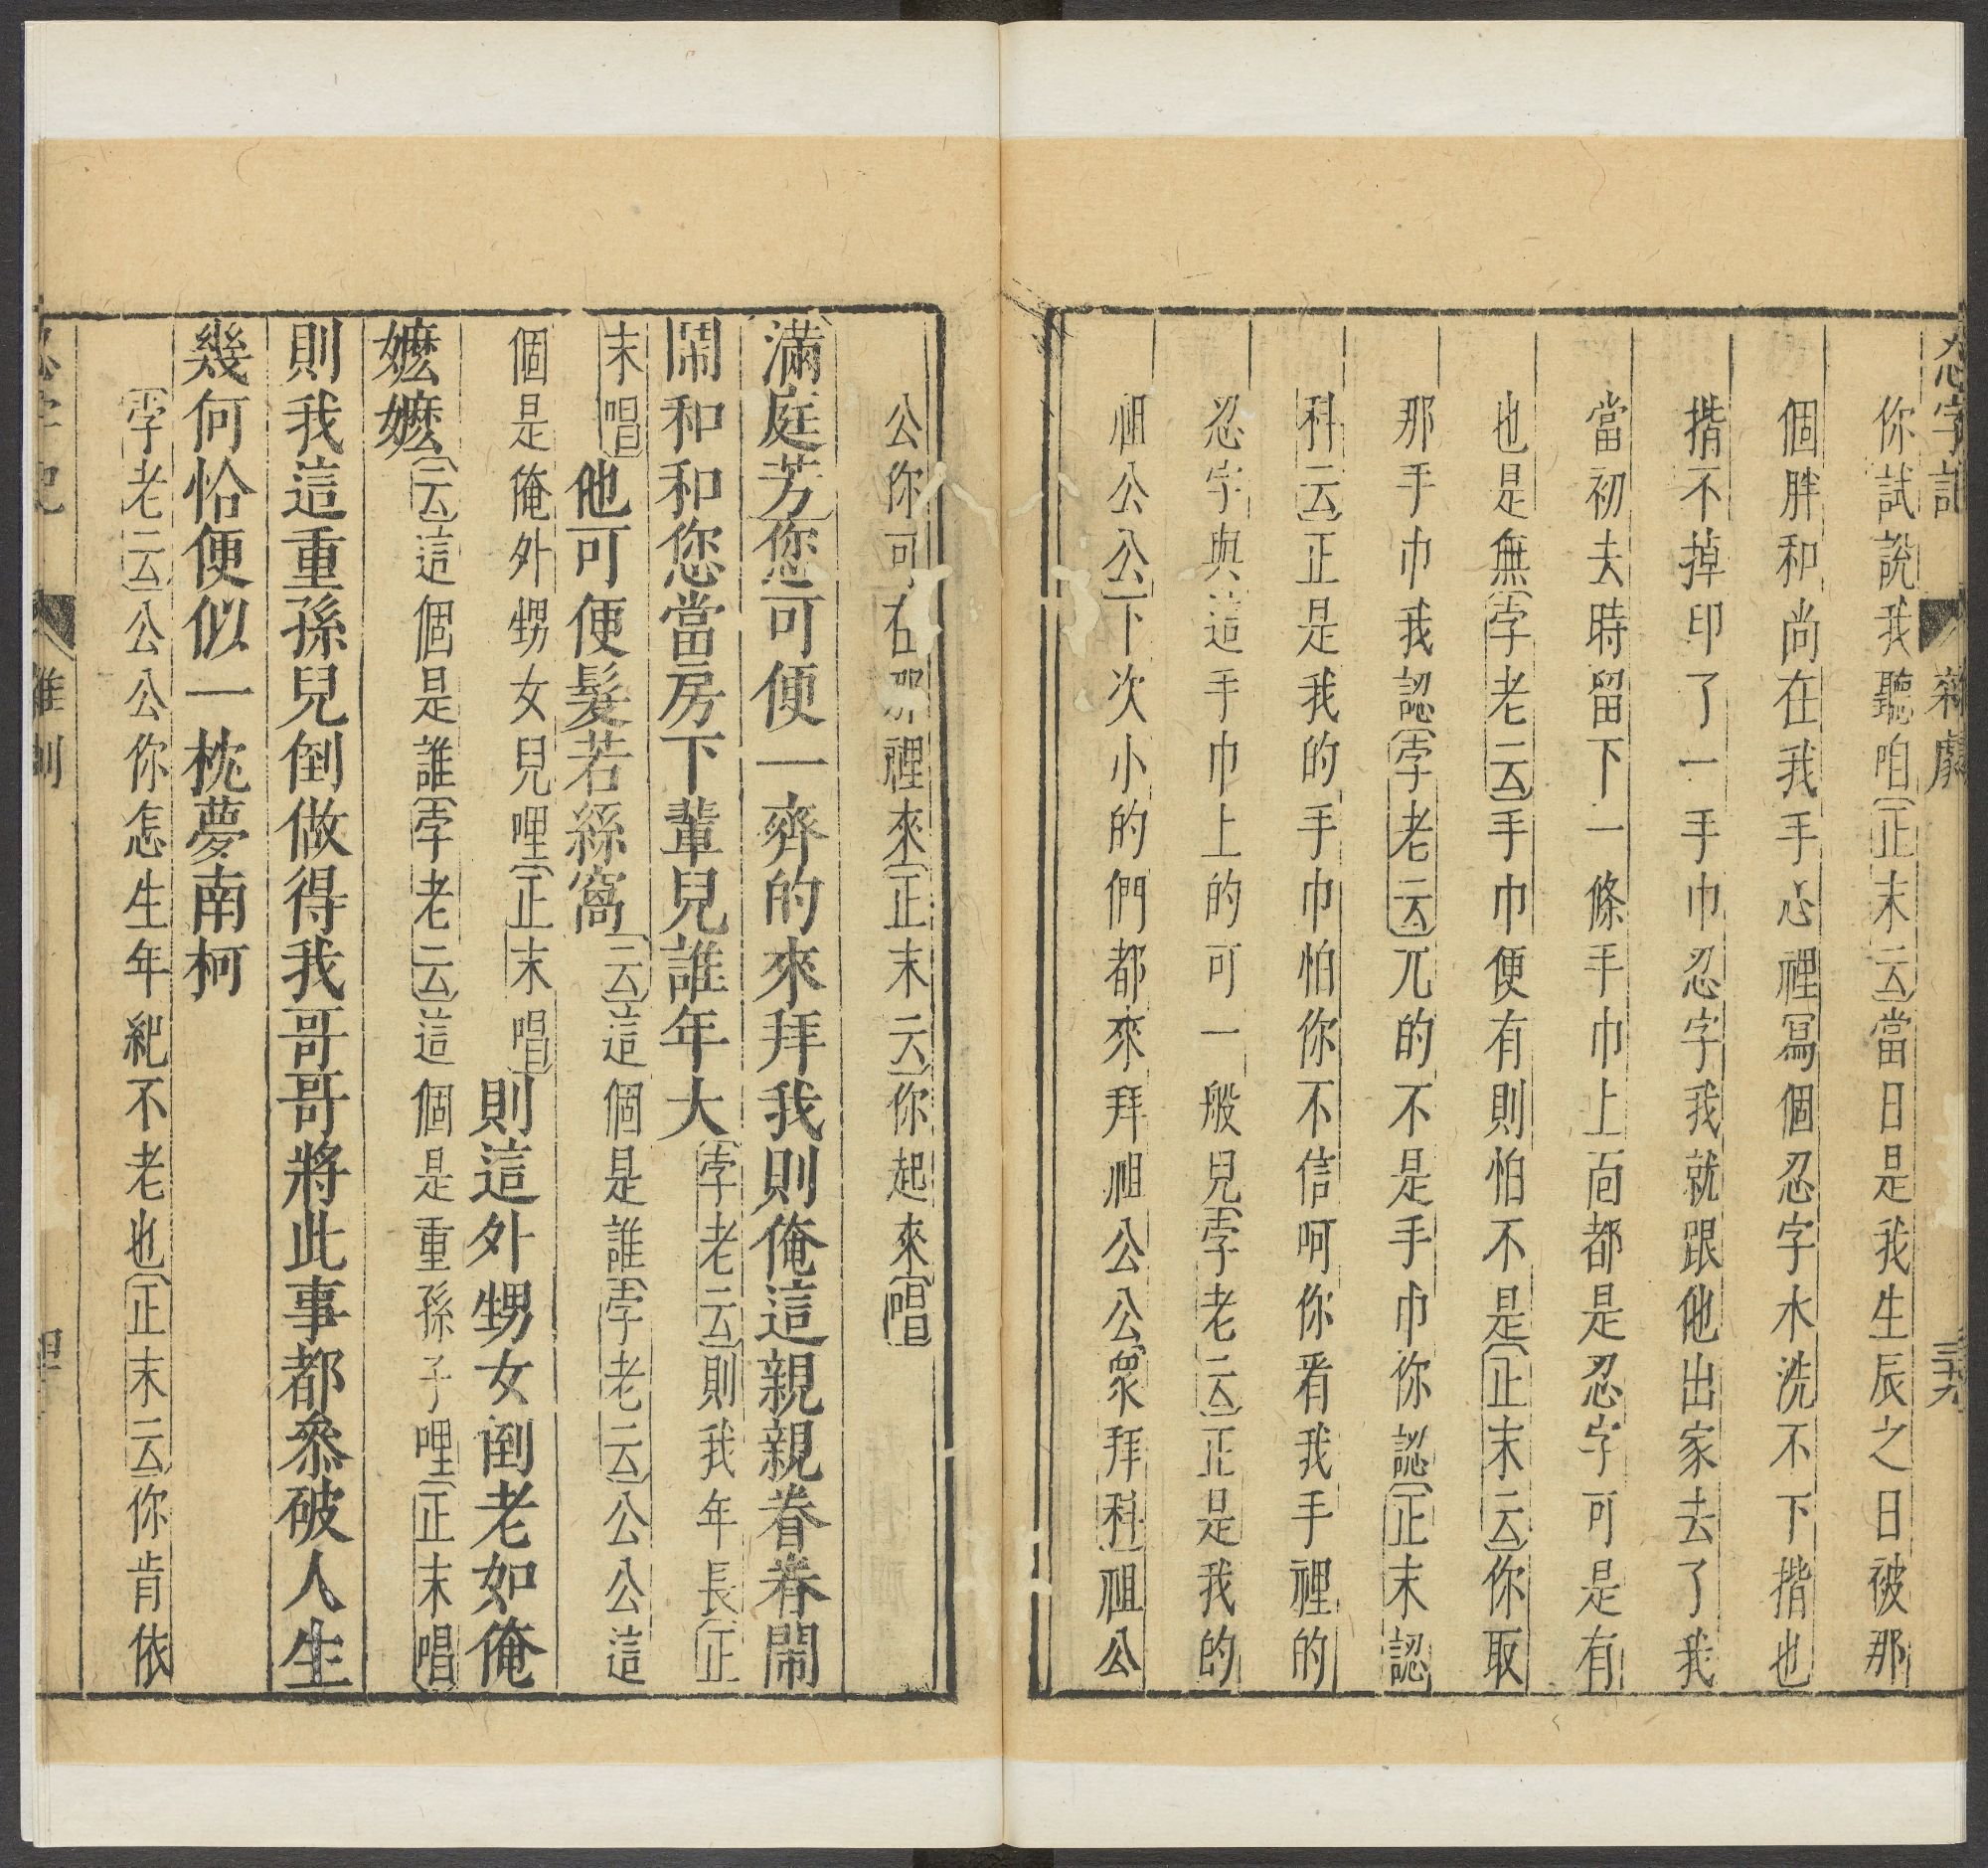 忍字記 雜劇
你試說我聽咱正末云當日是我生辰之日被那
個胖和尚在我手心裡寫個忍字水洗不下揩也
揩不掉印了一手巾忍字我就跟他出家去了我
當初去時留下一條手巾上面都是忍字可是有
也是無孛老云手巾便有則怕不是正末云你取
那手巾我認孛老云兀的不是手巾你認正末認
科云正是我的手巾怕你不信呵你看我手裡的
忍字與這手巾上的可一般兒孛老云正是我的
祖公公公下次小的們都來拜祖公公衆拜科祖公
公你可在那裡來正末云你起來唱
滿庭芳您可便一齊的來拜我則俺這親親眷眷鬧
鬧和和您當房下輩兒誰年大孛老云則我年長正
末唱他可便髮若絲窩云這個是誰孛老云公公這
個是俺外甥女兒哩正末唱則這外甥女倒老如俺
嬤嬤云這個是誰孛老云這個是重孫子哩正末唱
則我這重孫兒倒做得我哥哥將此事都叅破人生
幾何恰便似一枕夢南柯
孛老云公公你怎生年紀不老也正末云你肯依